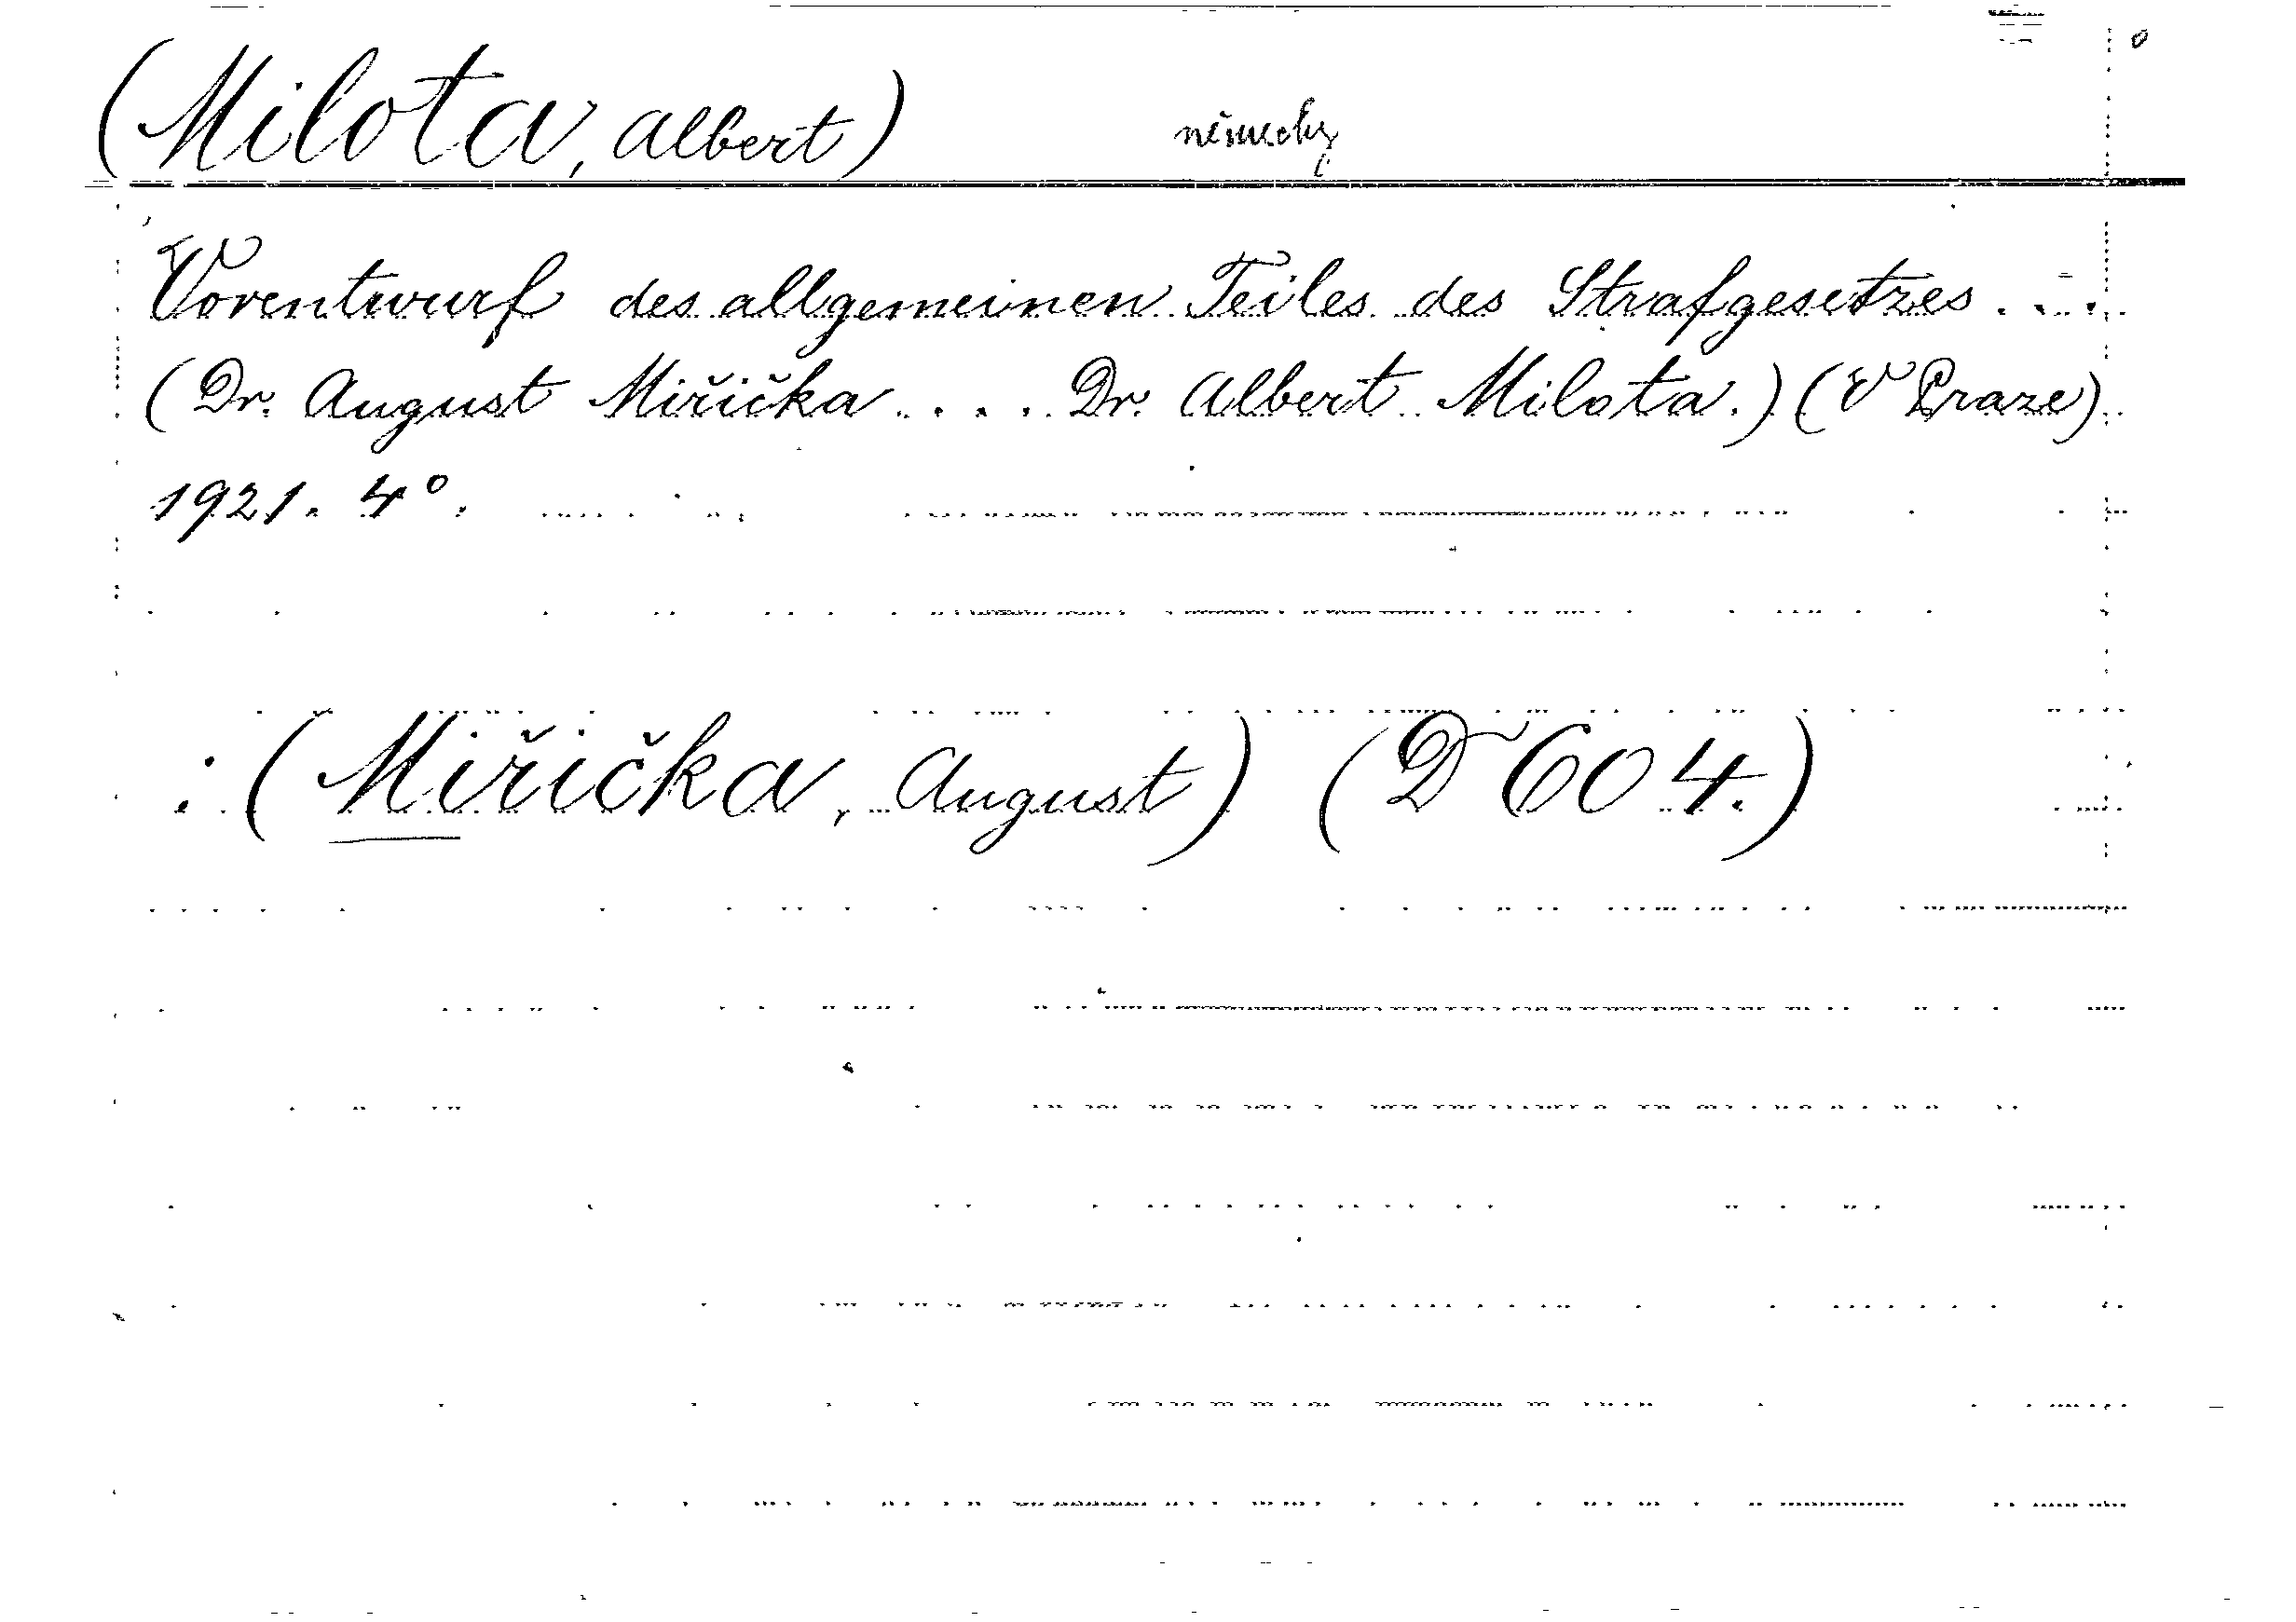 (Milota, Albert) německy
Vorentwurf des allgemeinen Teiles des Strafgesetzes . . .
(Dr. August Miřička . . . . Dr. Albert Milota.) (V Praze)
1921. 4°.
: (Miřička, August) (D 604.)